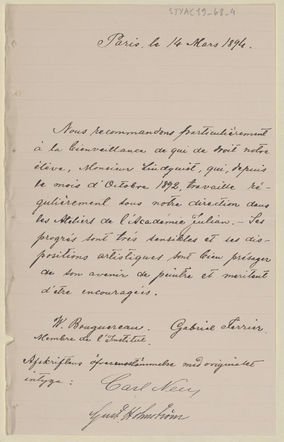 STYAC 19-68-4
Paris, le 14 Mars 1894.
Nous recommandons particulièrement
à la bienveillance de qui de droit notre
élève, Monsieur Lindquist, qui, depuis
le mois d'Octobre 1892, travaille ré-
gulièrement sous notre direction dans
les Ateliers de l'Académie Julian. – Ses
progrès sont très sensibles et ses dis-
positions artistiques sont bien présager
de son avenir de peintre et méritent
d'être encouragées.
W. Bouguereau. Gabriel Ferrier.
Membre de l'Institut.
Afskriftens öfverensstämmelse med originalet
intyga:
Carl
Gust. Holmström